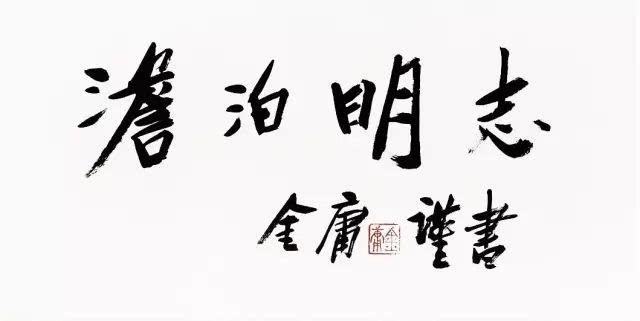 澹泊明志
金庸 謹書